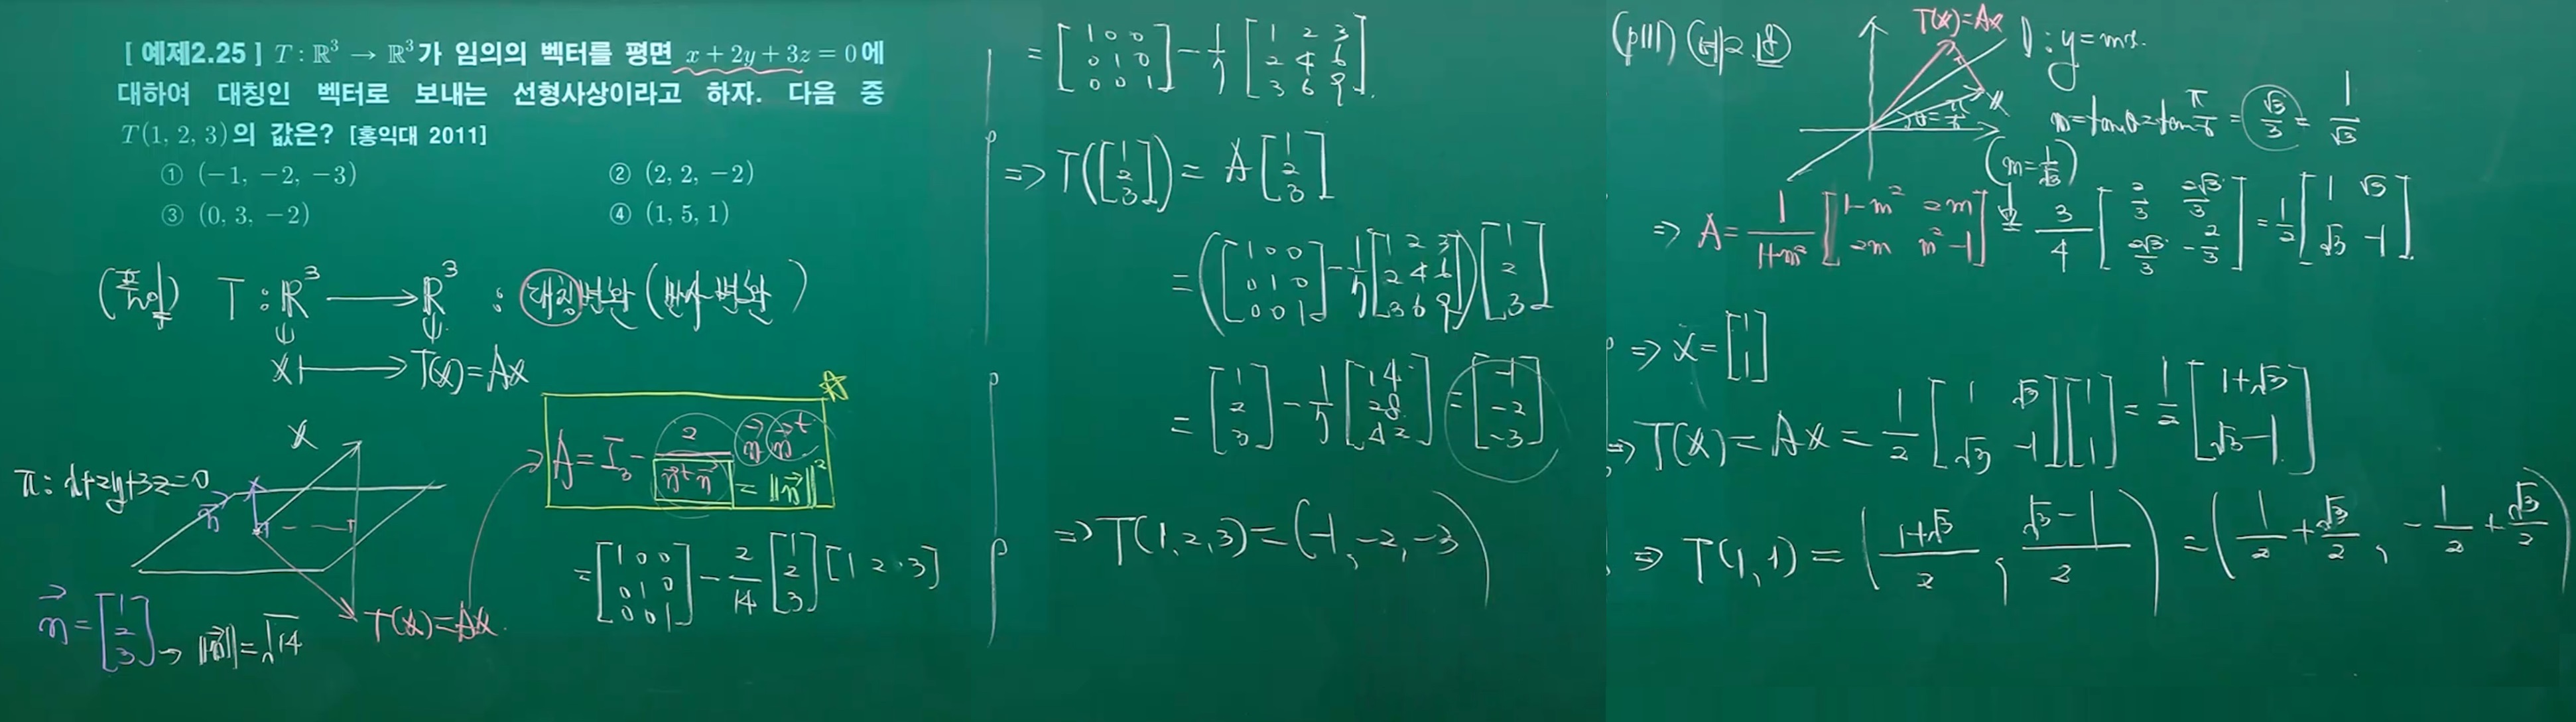 [ 예제2.25 ] T : ℝ³ → ℝ³가 임의의 벡터를 평면 x + 2y + 3z = 0에
대하여 대칭인 벡터로 보내는 선형사상이라고 하자. 다음 중
T(1, 2, 3)의 값은? [홍익대 2011]
① (−1, −2, −3) ② (2, 2, −2)
③ (0, 3, −2) ④ (1, 5, 1)
(풀이) T : ℝ³ ⟶ ℝ³ : 대칭변환 (반사변환)
x ⟼ T(x) = Ax
x
π: x+2y+3z=0
n⃗
n⃗ = [1 2 3] → ‖n⃗‖ = √14
T(x) = Ax
A = I₃ − 2/(n⃗ᵗn⃗) n⃗ n⃗ᵗ
= ‖n⃗‖²
= [1 0 0; 0 1 0; 0 0 1] − 2/14 [1; 2; 3] [1 2 3]
= [1 0 0; 0 1 0; 0 0 1] − 1/7 [1 2 3; 2 4 6; 3 6 9]
⇒ T([1; 2; 3]) = A [1; 2; 3]
= ([1 0 0; 0 1 0; 0 0 1] − 1/7 [1 2 3; 2 4 6; 3 6 9]) [1; 2; 3]
= [1; 2; 3] − 1/7 [14; 28; 42] = [−1; −2; −3]
⇒ T(1, 2, 3) = (−1, −2, −3)
(p111)
T(x) = Ax
l : y = mx
x
θ = π/6
m = tanθ = tan π/6 = √3/3 = 1/√3
(m = 1/√3)
⇒ A = 1/(1+m²) [1−m² 2m; 2m m²−1] = 3/4 [2/3 2√3/3; 2√3/3 −2/3] = 1/2 [1 √3; √3 −1]
⇒ x = [1; 1]
⇒ T(x) = Ax = 1/2 [1 √3; √3 −1] [1; 1] = 1/2 [1+√3; √3−1]
⇒ T(1, 1) = ((1+√3)/2, (√3−1)/2) = (1/2 + √3/2, −1/2 + √3/2)